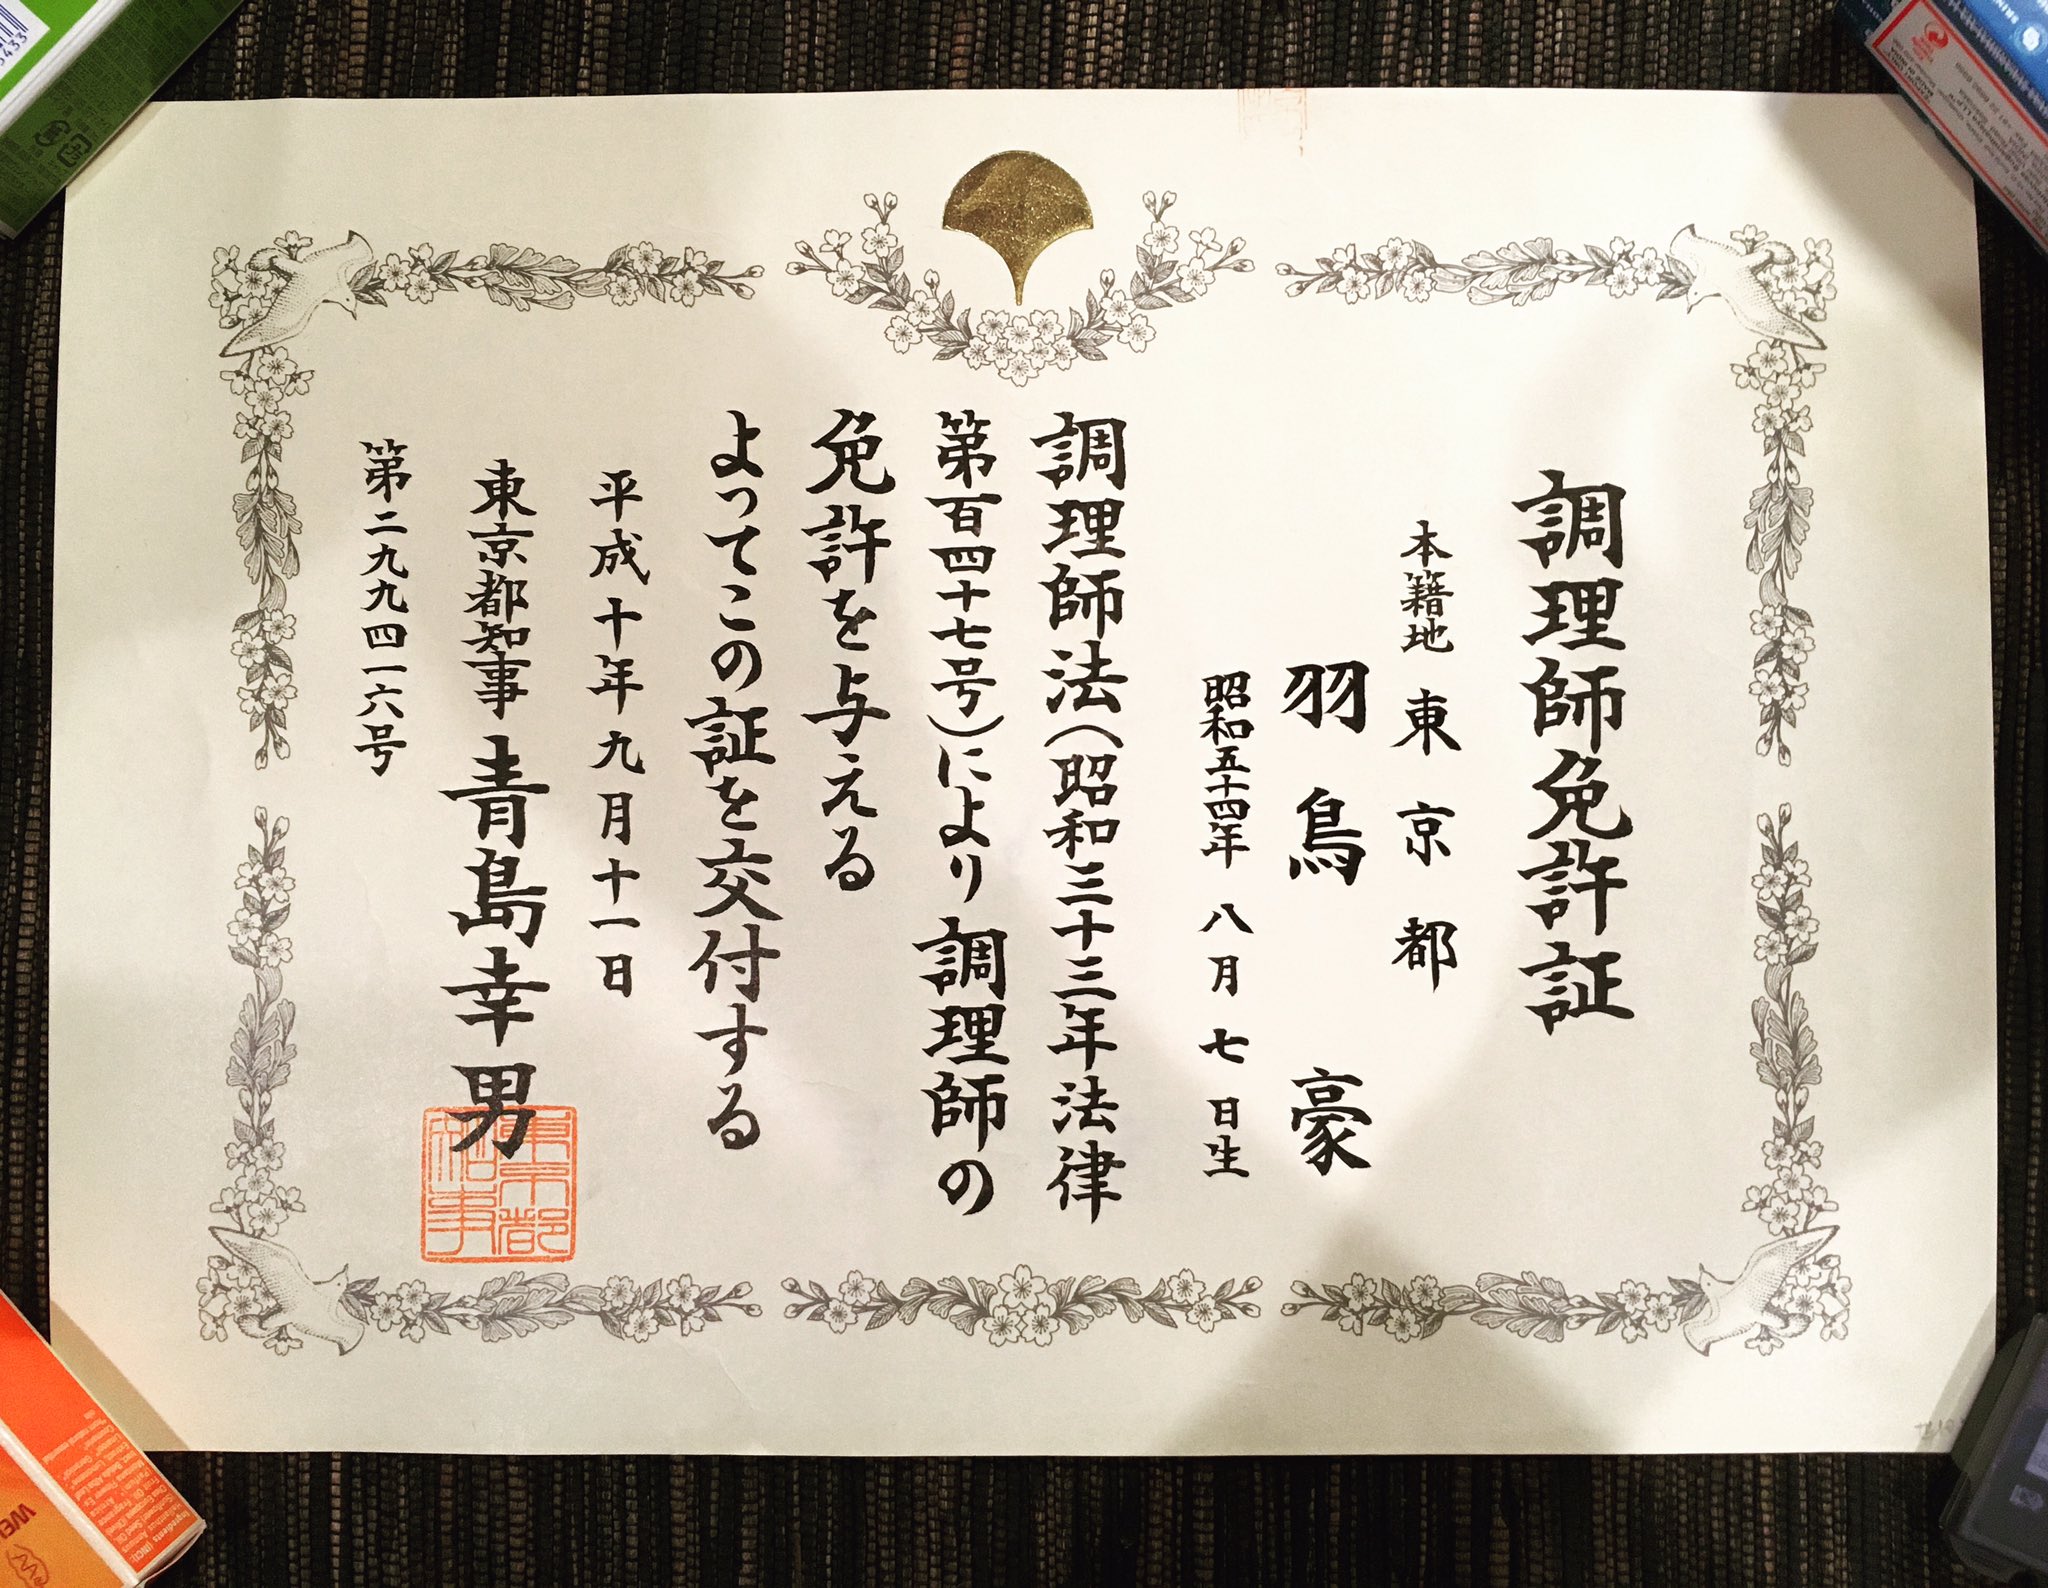 調理師免許証
本籍地 東京都
羽鳥 豪
昭和五十四年 八月 七日生
調理師法(昭和三十三年法律
第百四十七号)により調理師の
免許を与える
よってこの証を交付する
平成十年九月十一日
東京都知事 青島幸男
東京都
知事
第二九九四一六号